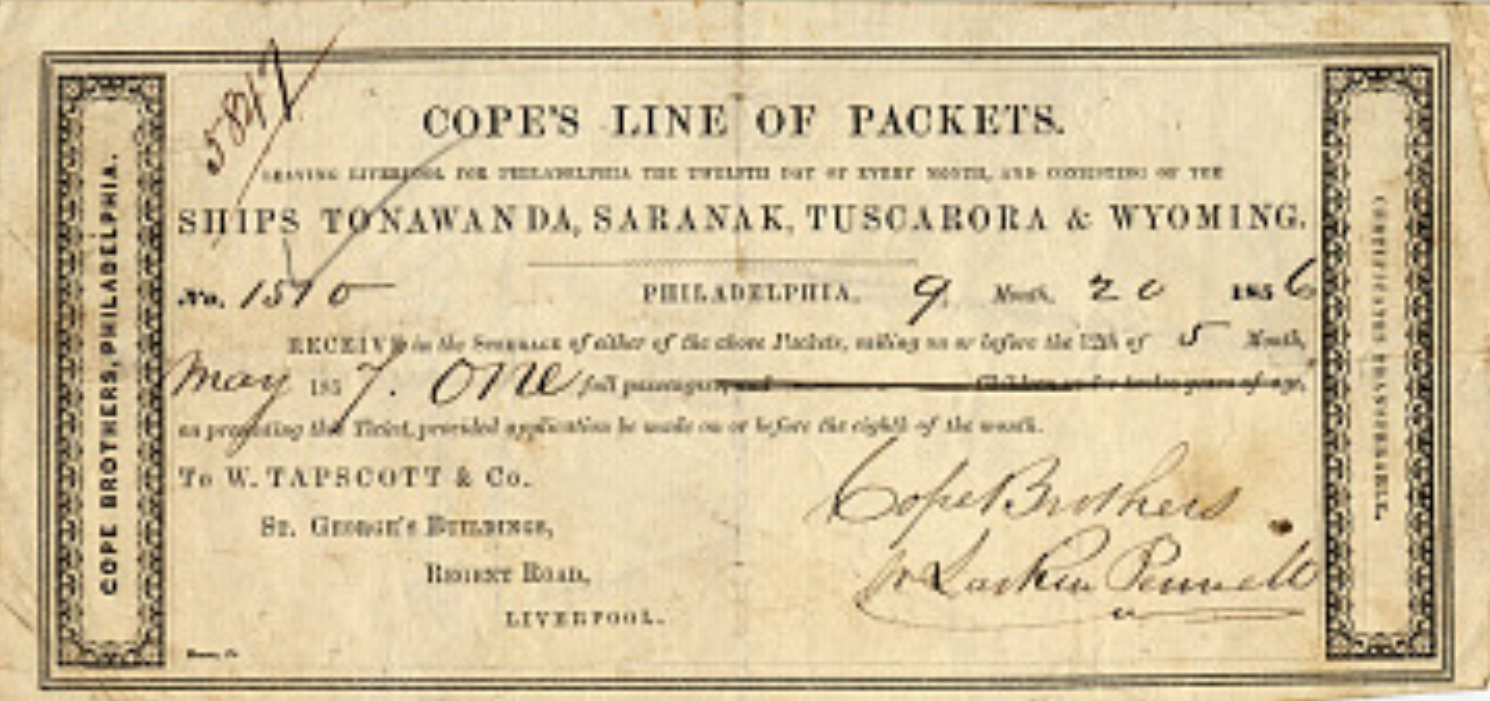 5847
COPE'S LINE OF PACKETS.
LEAVING LIVERPOOL FOR PHILADELPHIA THE TWELFTH DAY OF EVERY MONTH, AND CONSISTING OF THE
SHIPS TONAWANDA, SARANAK, TUSCARORA & WYOMING.
No. 1510 PHILADELPHIA, 9. Month. 20 1856
RECEIVE in the STEERAGE of either of the above Packets, sailing on or before the 12th of 5 Month,
May 1857. One full passengers, and Children under twelve years of age,
on presenting this Ticket, provided application be made on or before the eighth of the month.
To W. TAPSCOTT & Co.
ST. GEORGE'S BUILDINGS,
REGENT ROAD,
LIVERPOOL.
Cope Brothers
Pennell
COPE BROTHERS, PHILADELPHIA.
CERTIFICATES TRANSFERABLE.